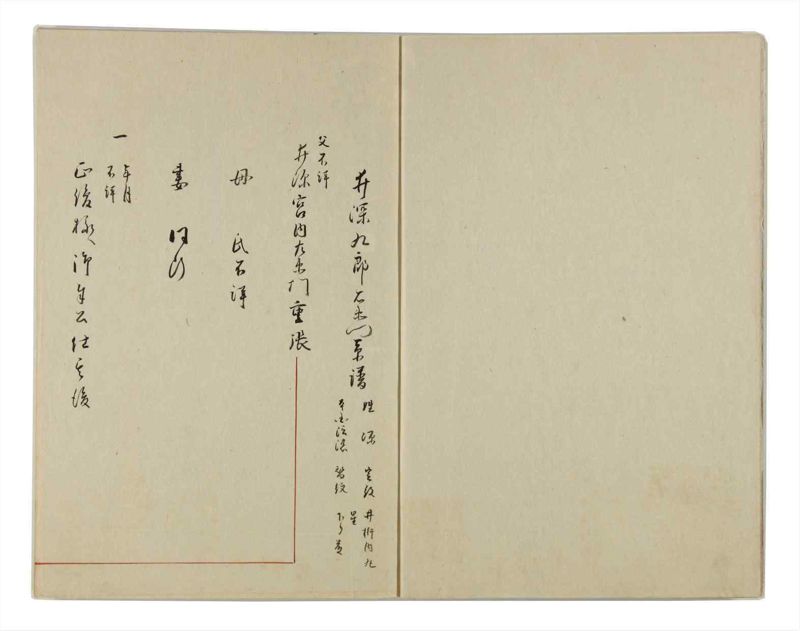 井深九郎右衛門系譜
姓 源 定紋 井桁内九星
本国信濃 替紋 下り藤
父不詳
井深宮内左衛門重張
母 氏不詳
妻 同断
一 年月不詳
正後様御奉公仕其後